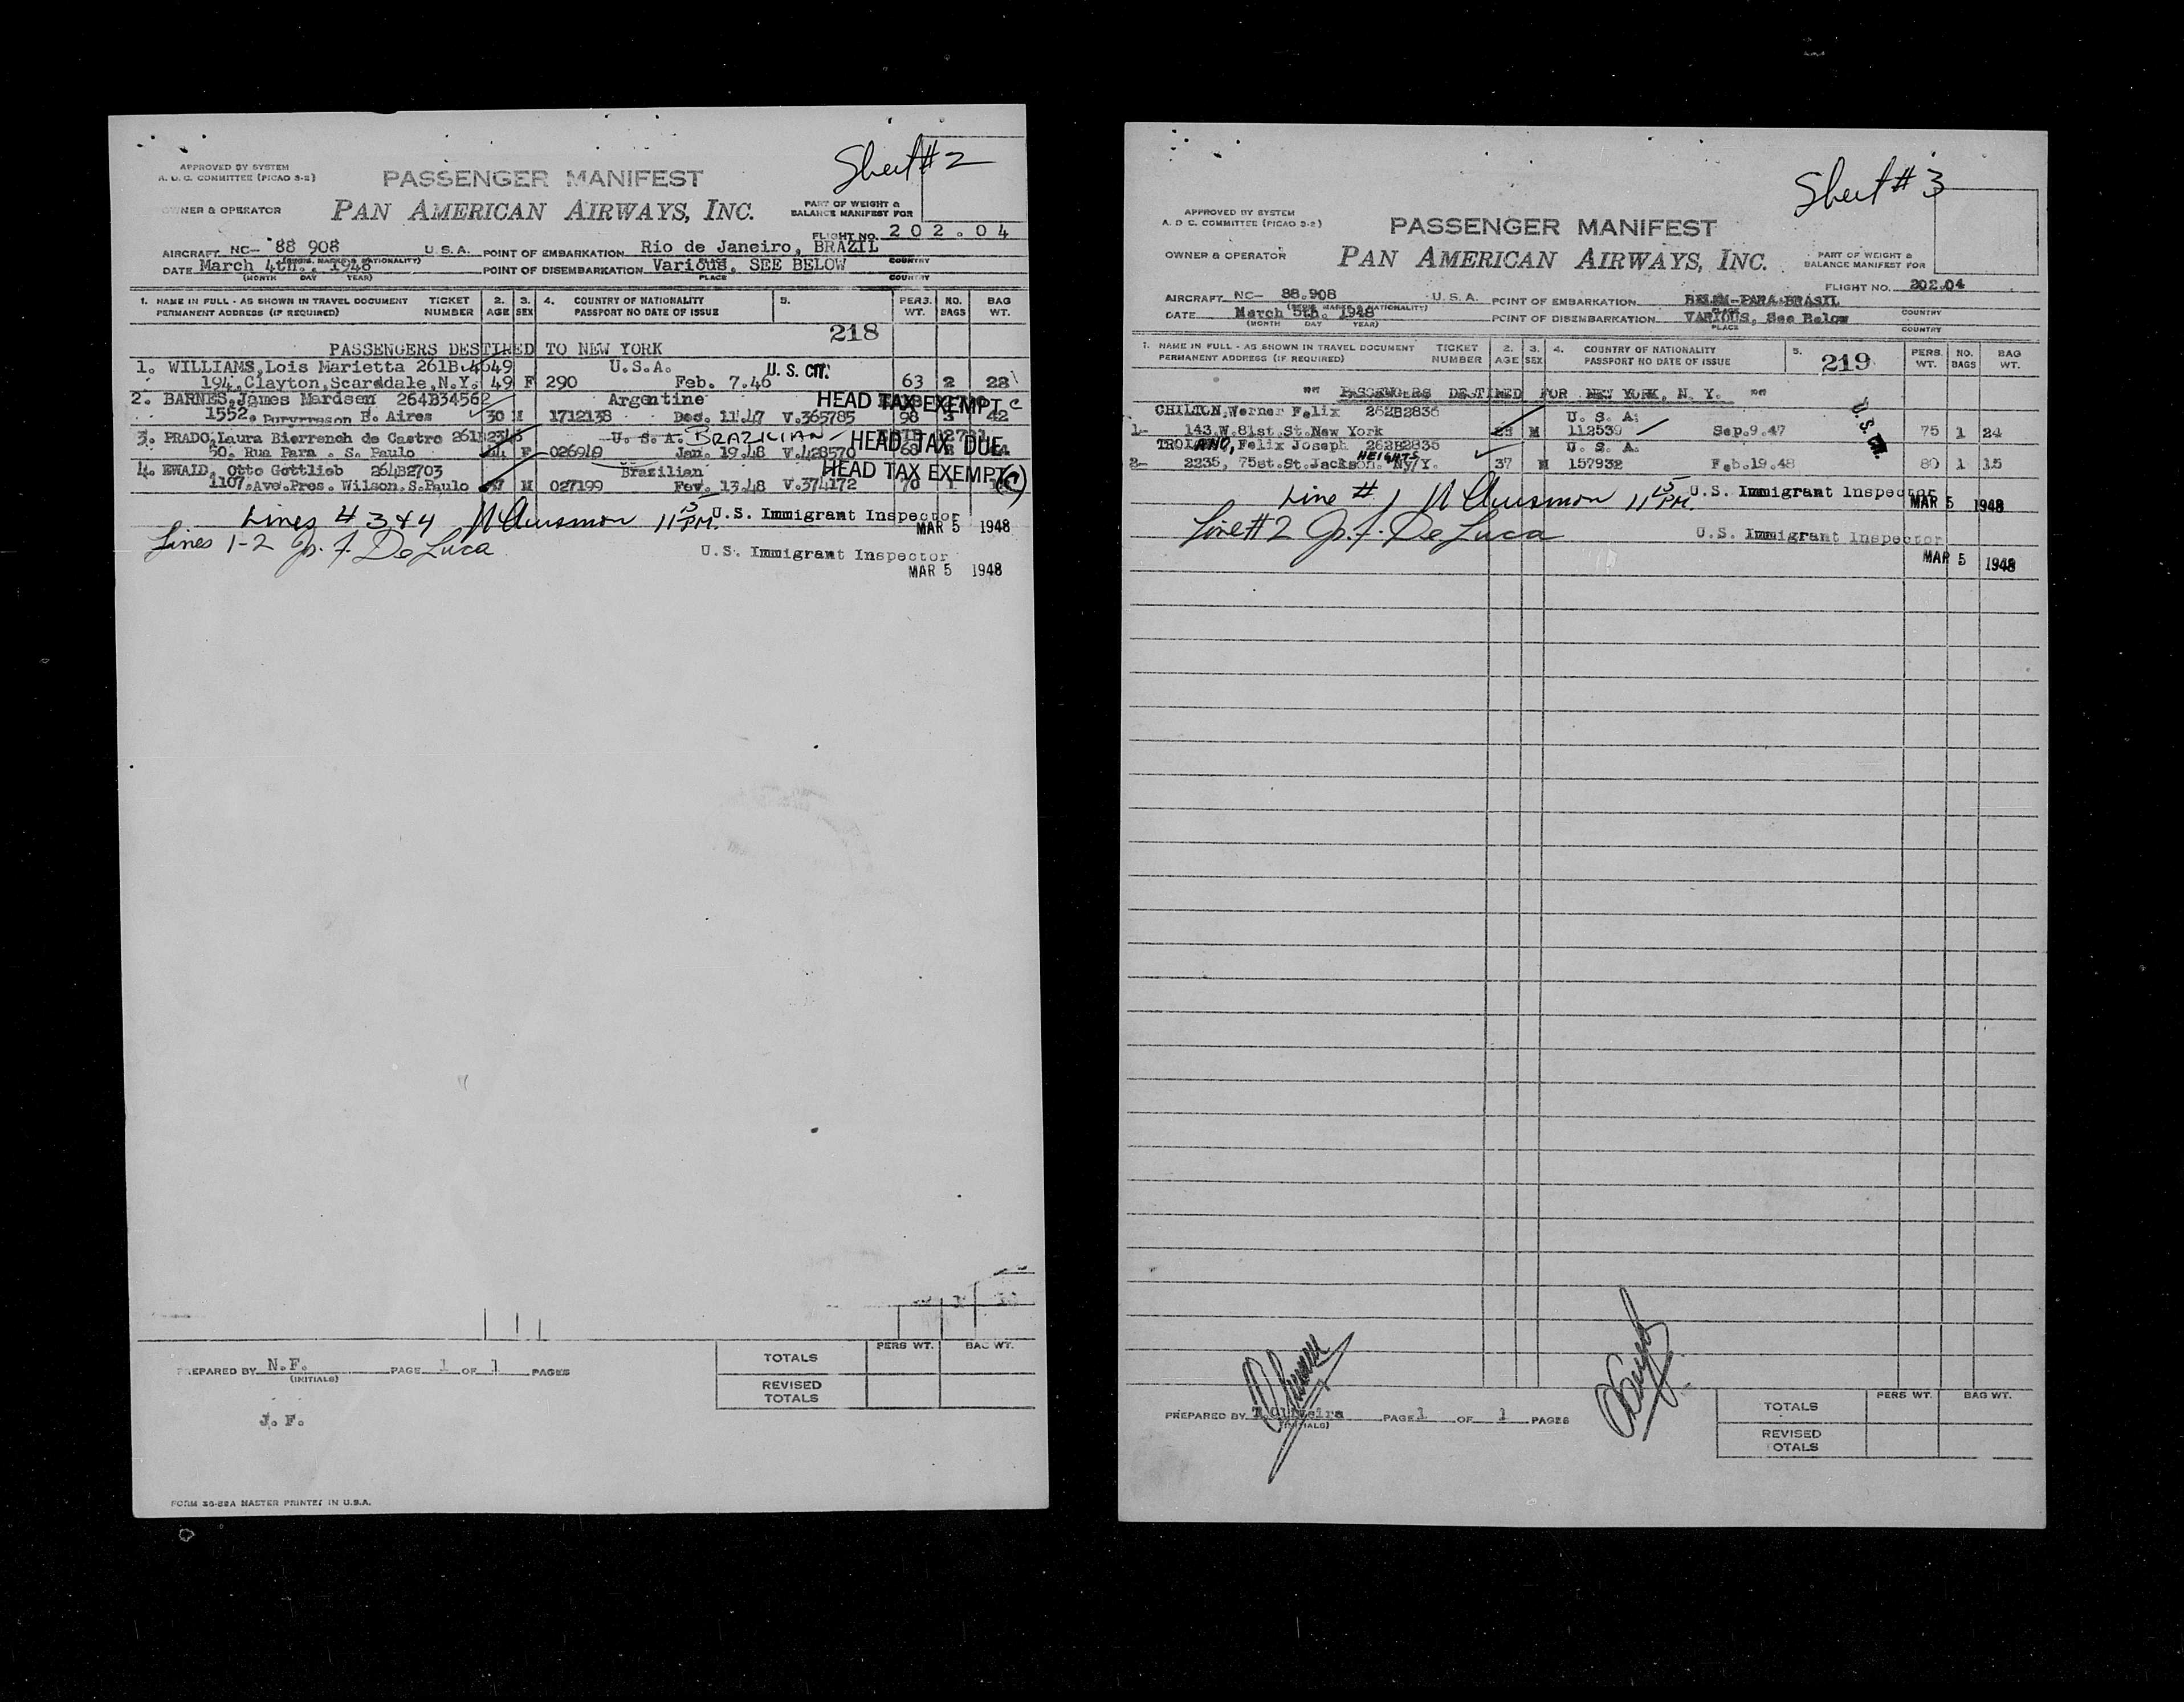 Sheet # 2
APPROVED BY SYSTEM
A. D. C. COMMITTEE (PICAO 3-2)
PASSENGER MANIFEST
OWNER & OPERATOR
PAN AMERICAN AIRWAYS, INC.
PART OF WEIGHT &
BALANCE MANIFEST FOR
FLIGHT NO. 202.04
AIRCRAFT NC- 88 908 U.S.A. POINT OF EMBARKATION Rio de Janeiro, BRAZIL
DATE March 4th., 1948 POINT OF DISEMBARKATION Various, SEE BELOW
(MONTH DAY YEAR) PLACE COUNTRY
1. NAME IN FULL - AS SHOWN IN TRAVEL DOCUMENT TICKET 2. 3. 4. COUNTRY OF NATIONALITY 5. PERS. NO. BAG
PERMANENT ADDRESS (IF REQUIRED) NUMBER AGE SEX PASSPORT NO DATE OF ISSUE WT. BAGS WT.
218
PASSENGERS DESTINED TO NEW YORK
1. WILLIAMS, Lois Marietta 261B.4649 U.S.A. U. S. CIT.
194, Clayton, Scarsdale, N.Y. 49 F 290 Feb. 7.46 63 2 28
2. BARNES, James Mardsen 264B34562 Argentine HEAD TAX EXEMPT C
1552. B. Aires 30 M 1712138 Dec. 11.47 V.365785 98 3 42
3. PRADO, Laura Bierrench de Castro U. S. A. BRAZILIAN HEAD TAX DUE
50. Rua Para . S. Paulo 44 F 026949 Jan. 19.48 V.428570 68
4. EWALD, Otto Gottlieb 264B2703 Brazilian HEAD TAX EXEMPT (C)
1107. Ave. Pres. Wilson. S. Paulo M 027199 Fev. 13.48 V.374172 70 1
Lines # 3 & 4 11 15 PM. U.S. Immigrant Inspector
MAR 5 1948
Lines 1-2 Jo. F. De Luca
U.S. Immigrant Inspector
MAR 5 1948
PERS WT. BAG WT.
TOTALS
PREPARED BY N.F. PAGE 1 OF 1 PAGES
(INITIALS)
REVISED
TOTALS
J. F.
FORM 36-88A MASTER PRINTED IN U.S.A.
Sheet # 3
APPROVED BY SYSTEM
A. D C. COMMITTEE (PICAO 3-2)
PASSENGER MANIFEST
OWNER & OPERATOR
PAN AMERICAN AIRWAYS, INC.
PART OF WEIGHT &
BALANCE MANIFEST FOR
FLIGHT NO. 202.04
AIRCRAFT NC- 88.908 U.S.A. POINT OF EMBARKATION BELEM-PARA-BRASIL
DATE March 5th. 1948 POINT OF DISEMBARKATION VARIOUS, See Below
(MONTH DAY YEAR) PLACE COUNTRY
1. NAME IN FULL - AS SHOWN IN TRAVEL DOCUMENT TICKET 2. 3. 4. COUNTRY OF NATIONALITY 5. PERS. NO. BAG
PERMANENT ADDRESS (IF REQUIRED) NUMBER AGE SEX PASSPORT NO DATE OF ISSUE WT. BAGS WT.
219
"" PASSENGERS DESTINED FOR NEW YORK, N. Y. ""
CHILTON, Werner Felix 262B2836 U. S. A. U.S. Cit.
1- 143. W. 81st. St. New York M 112539 Sep.9.47 75 1 24
TROIANO, Felix Joseph 262B2835 U. S. A.
HEIGHTS
2- 2235, 75st. St. Jackson. Ny/Y. 37 M 157932 Feb.19.48 80 1 15
Line # 1 11 15 PM. U.S. Immigrant Inspector
MAR 5 1948
Line # 2 Jo. F. De Luca U.S. Immigrant Inspector
MAR 5 1948
PERS WT. BAG WT.
TOTALS
PREPARED BY T. Oliveira PAGE 1 OF 1 PAGES
(INITIALS)
REVISED
TOTALS